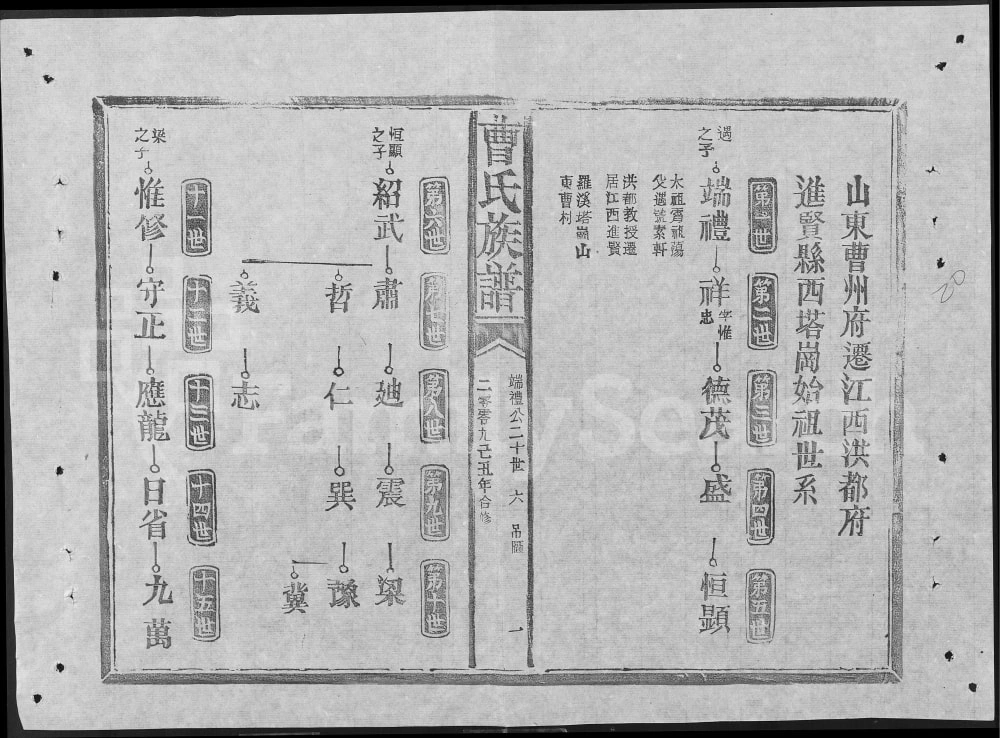 山東曹州府遷江西洪都府
進賢縣西塔崗始祖世系
第一世
第二世
第三世
第四世
第五世
遇之子
端禮
祥
字惟忠
德茂
盛
恒顯
洪都教授遷
居江西進賢
羅溪塔崗山
東曹利
曹氏族譜
端禮公二十世 六 吊圖 一
二零零九己丑年合修
第六世
第七世
第八世
第九世
第十世
恒顯之子
紹武
肅
廸
震
梁
哲
仁
巽
豫
冀
義
志
十一世
十二世
十三世
十四世
十五世
梁之子
惟修
守正
應龍
日省
九萬
20
FamilySearch